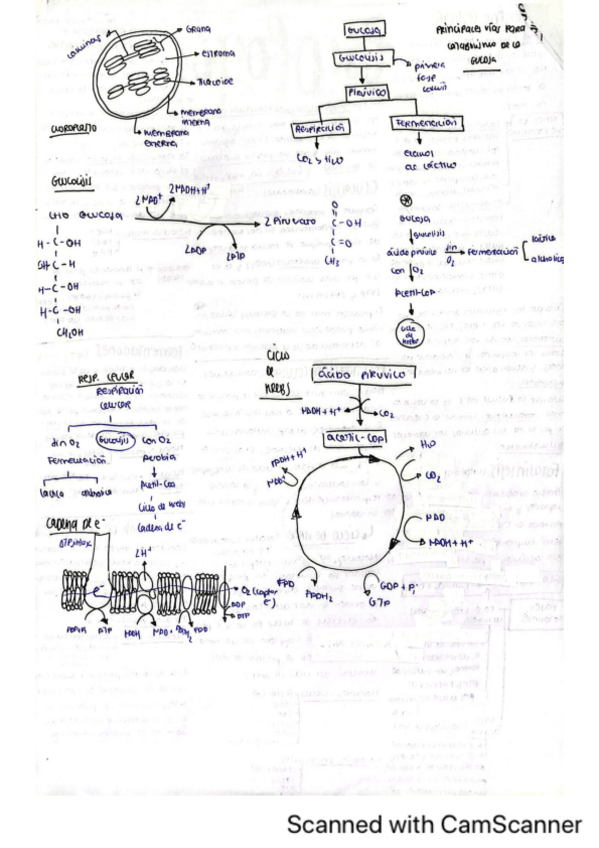 Grana
estroma
Tilacoide
membrana interna
membrana externa
CLOROPLASTO
Principales vías para
catabolismo de la
GLUCOSA
GLUCOSA
GLUCOLISIS
primera
fase
común
PIRÚVICO
RESPIRACIÓN
FERMENTACIÓN
CO2 y H2O
etanol
ac láctico
GLUCOLISIS
2NAD+
2NADH+H+
CHO GLUCOSA
2 Piruvato
2ADP
2ATP
H-C-OH
OH-C-H
H-C-OH
H-C-OH
CH2OH
O
C-OH
C=O
CH3
GLUCOSA
glucolisis
ácido pirúvico sin O2 Fermentación
láctica
alcohólica
con O2
Acetil-CoA
Ciclo
de
Krebs
RESP. CELULAR
RESPIRACIÓN
CELULAR
sin O2
Glucolisis
con O2
Fermentación
Aerobia
láctica
Acetil-CoA
Ciclo de Krebs
Cadena de e-
CICLO
DE
KREBS
ÁCIDO PIRÚVICO
NADH+H+
CO2
acetil-CoA
NADH+H+
NAD
H2O
CO2
NAD
NADH+H+
GDP + Pi
GTP
FAD
FADH2
Cadena de e-
2H+
e-
O2 (captor
e-)
ADP
ATP
ATP
NADH
NAD+
FADH2
FAD
Scanned with CamScanner